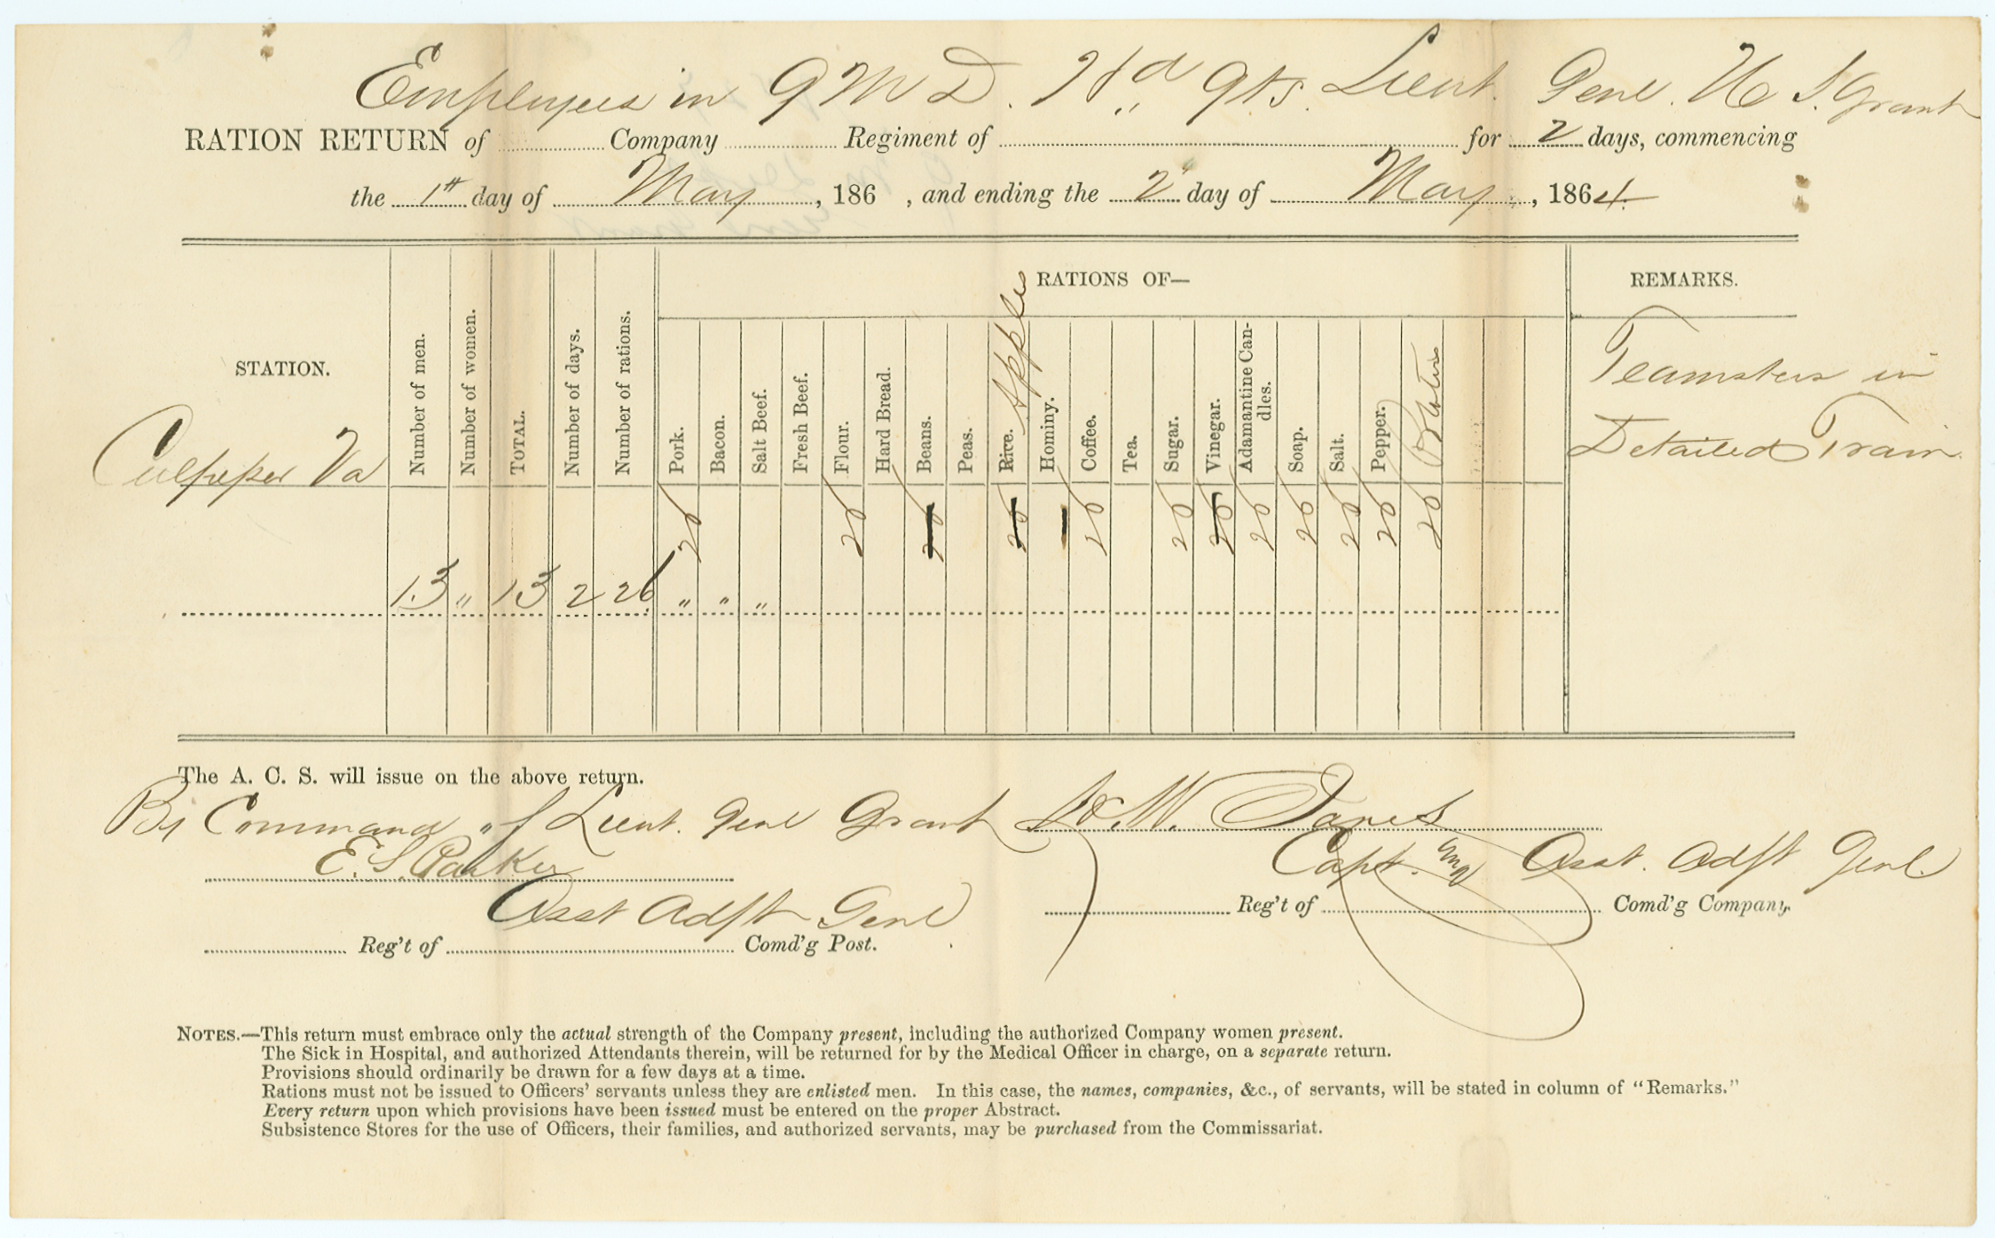 Employees in QMD. Hd Qts. Lieut. Genl. U S. Grant
RATION RETURN of Company Regiment of for 2 days, commencing
the 1st day of May, 186 , and ending the 2d day of May, 1864.
STATION. Number of men. Number of women. TOTAL. Number of days. Number of rations. RATIONS OF— REMARKS.
Pork. Bacon. Salt Beef. Fresh Beef. Flour. Hard Bread. Beans. Peas. Rice. Apples Hominy. Coffee. Tea. Sugar. Vinegar. Adamantine Candles. Soap. Salt. Pepper. Potatoes
Culpeper Va
Teamsters in
Detailed Train
26 26 26 26 26 26 26 26 26 26 26
13 " 13 2 26 " " "
The A. C. S. will issue on the above return.
By Command of Lieut. Genl Grant
E. S. Parker
Asst Adjt Genl
Reg't of Comd'g Post.
W. Janes
Capt. and Asst. Adjt Genl.
Reg't of Comd'g Company.
NOTES.—This return must embrace only the actual strength of the Company present, including the authorized Company women present.
The Sick in Hospital, and authorized Attendants therein, will be returned for by the Medical Officer in charge, on a separate return.
Provisions should ordinarily be drawn for a few days at a time.
Rations must not be issued to Officers' servants unless they are enlisted men. In this case, the names, companies, &c., of servants, will be stated in column of "Remarks."
Every return upon which provisions have been issued must be entered on the proper Abstract.
Subsistence Stores for the use of Officers, their families, and authorized servants, may be purchased from the Commissariat.